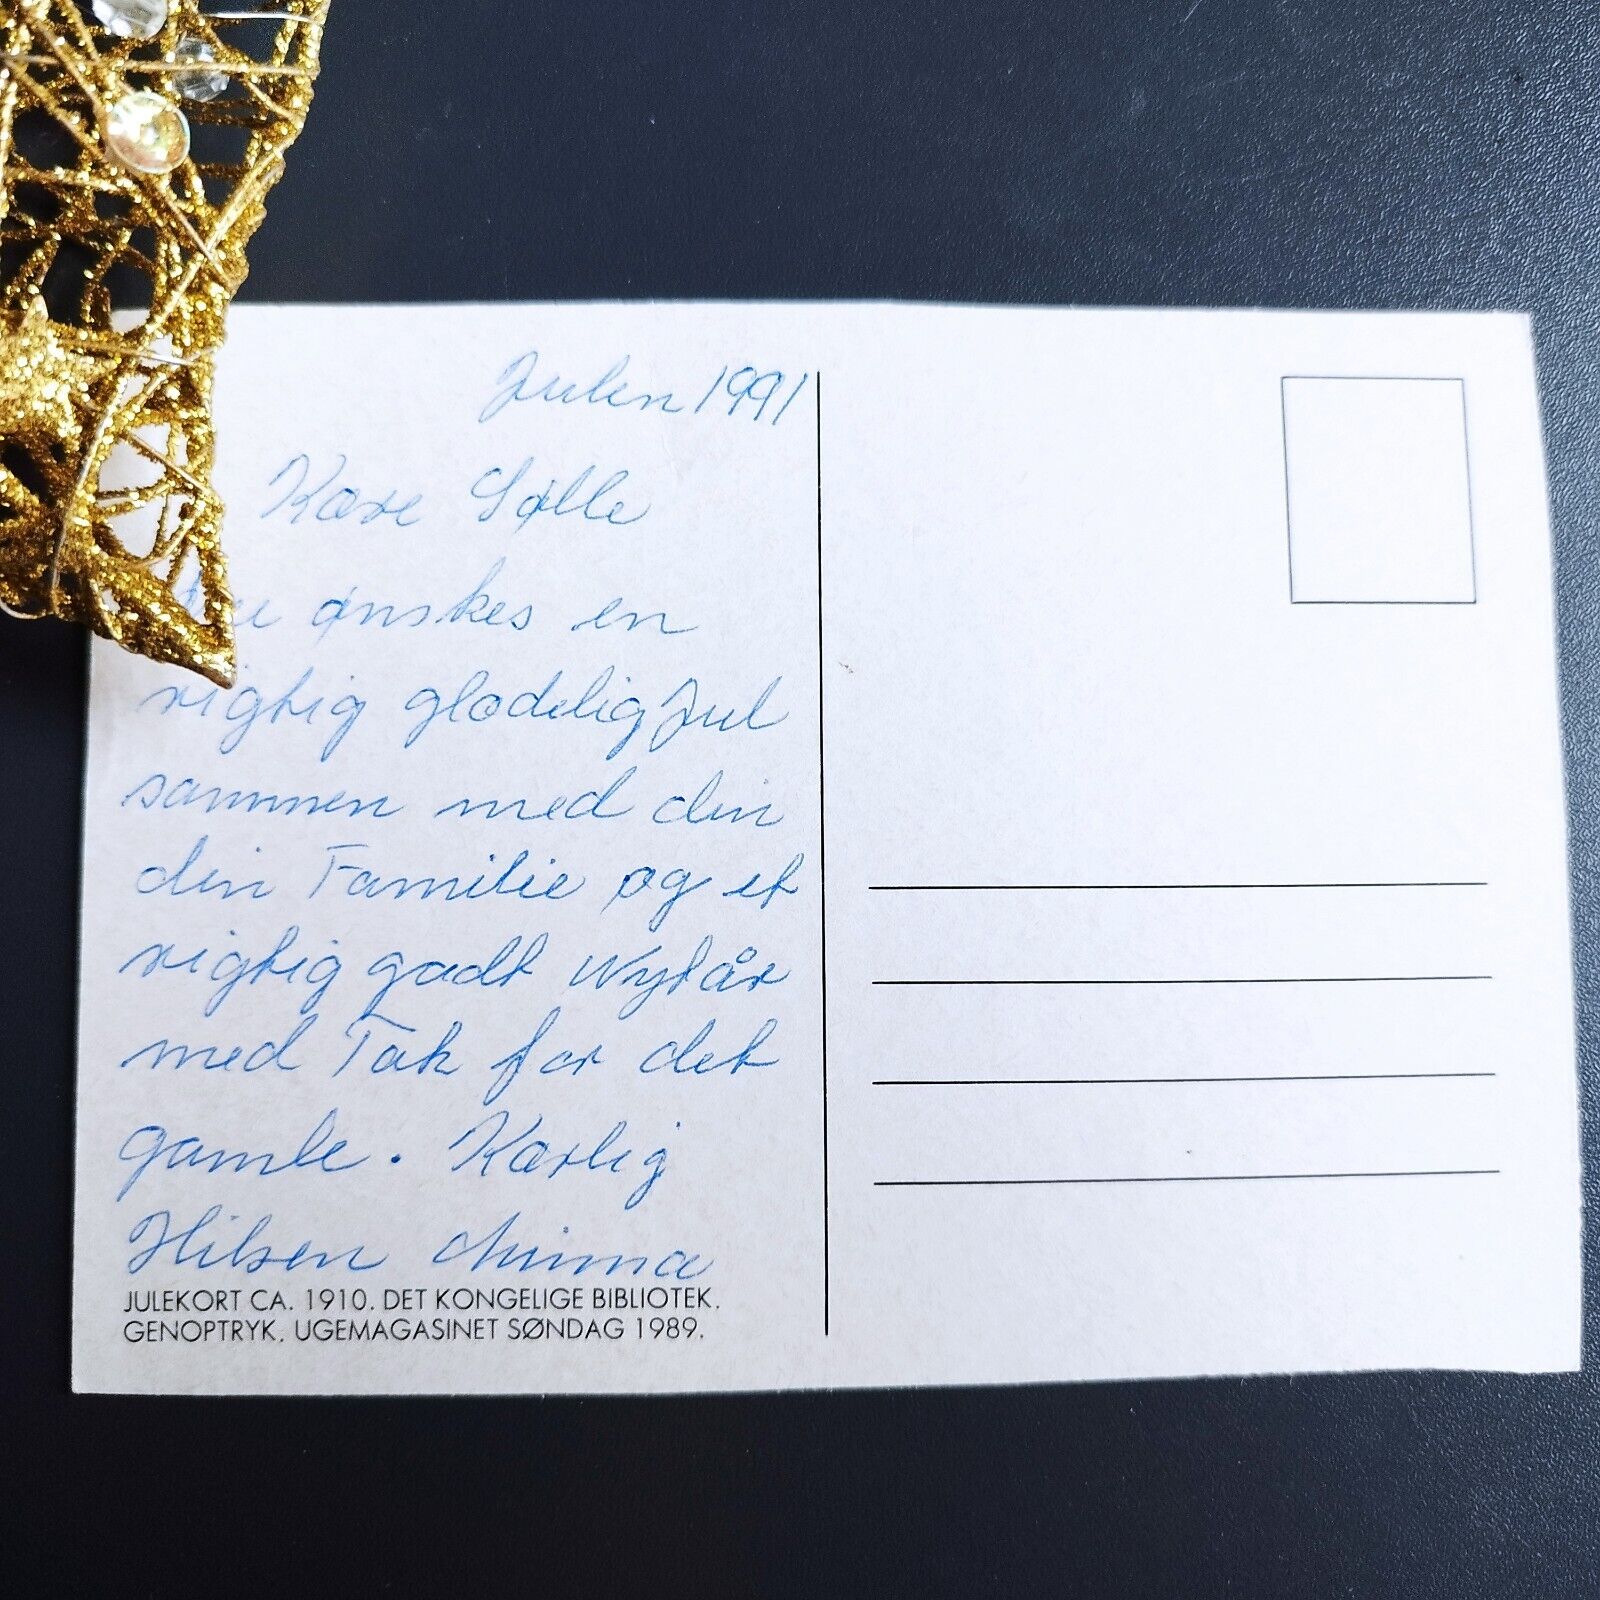 Julen 1991
Kære Sølle
ønskes en
rigtig glædelig Jul
sammen med din
din Familie og et
rigtig godt Nytår
med Tak for det
gamle. Kærlig
Hilsen Minna
JULEKORT CA. 1910. DET KONGELIGE BIBLIOTEK.
GENOPTRYK. UGEMAGASINET SØNDAG 1989.